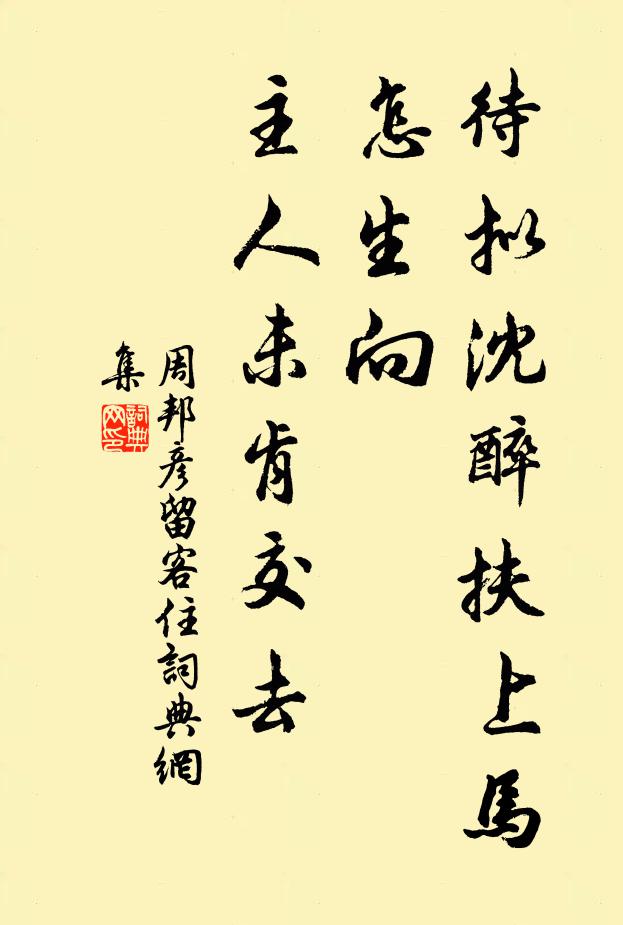 待拟沈醉扶上馬
怎生向
主人未肯交去
周邦彥留客住詞典網
集
詞典
网印